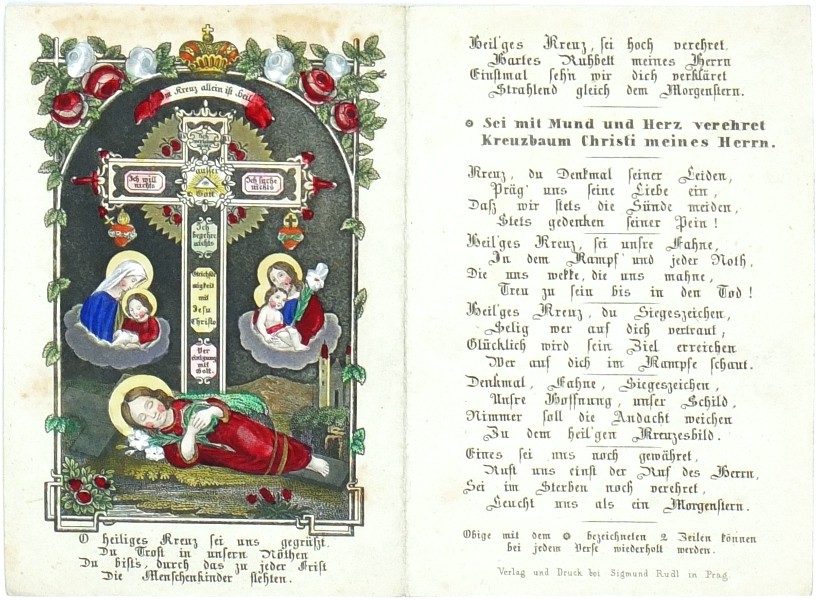 Im Kreuz allein ist Heil
Ich will
nichts
ausser
Gott
Ich suche
nichts
Ich
begehre
nichts
Gleichför
migkeit
mit
Jesu
Christo
Ver
einigung
mit
Gott.
O heiliges Kreuz sei uns gegrüßt.
Du Trost in unsern Nöthen
Du bist's, durch das zu jeder Frist
Die Menschenkinder flehten.
Heil'ges Kreuz, sei hoch verehret.
Hartes Ruhbett meines Herrn
Einstmal seh'n wir dich verkläret
Strahlend gleich dem Morgenstern.
Sei mit Mund und Herz verehret
Kreuzbaum Christi meines Herrn.
Kreuz, du Denkmal seiner Leiden,
Präg' uns seine Liebe ein,
Daß wir stets die Sünde meiden,
Stets gedenken seiner Pein!
Heil'ges Kreuz, sei unsre Fahne,
In dem Kampf und jeder Noth,
Die uns wekke, die uns mahne,
Treu zu sein bis in den Tod!
Heil'ges Kreuz, du Siegeszeichen,
Selig wer auf dich vertraut,
Glücklich wird sein Ziel erreichen
Wer auf dich im Kampfe schaut.
Denkmal, Fahne, Siegeszeichen,
Unsre Hoffnung, unser Schild,
Nimmer soll die Andacht weichen
Zu dem heil'gen Kreuzesbild.
Eines sei uns noch gewähret,
Ruft uns einst der Ruf des Herrn,
Sei im Sterben noch verehret,
Leucht uns als ein Morgenstern.
Obige mit dem bezeichneten 2 Zeilen können
bei jedem Verse wiederholt werden.
Verlag und Druck bei Sigmund Rudl in Prag.